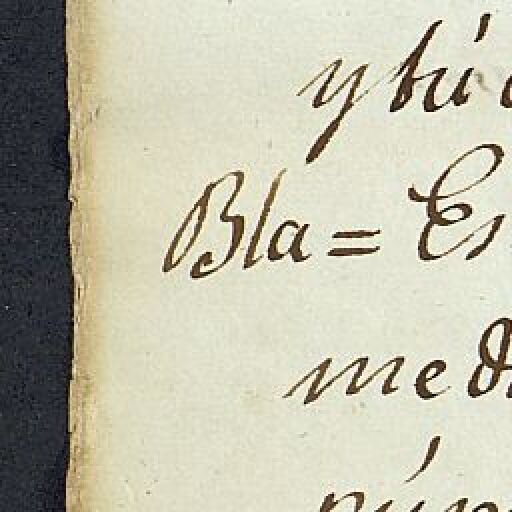 y tú
Bla = Es
me d